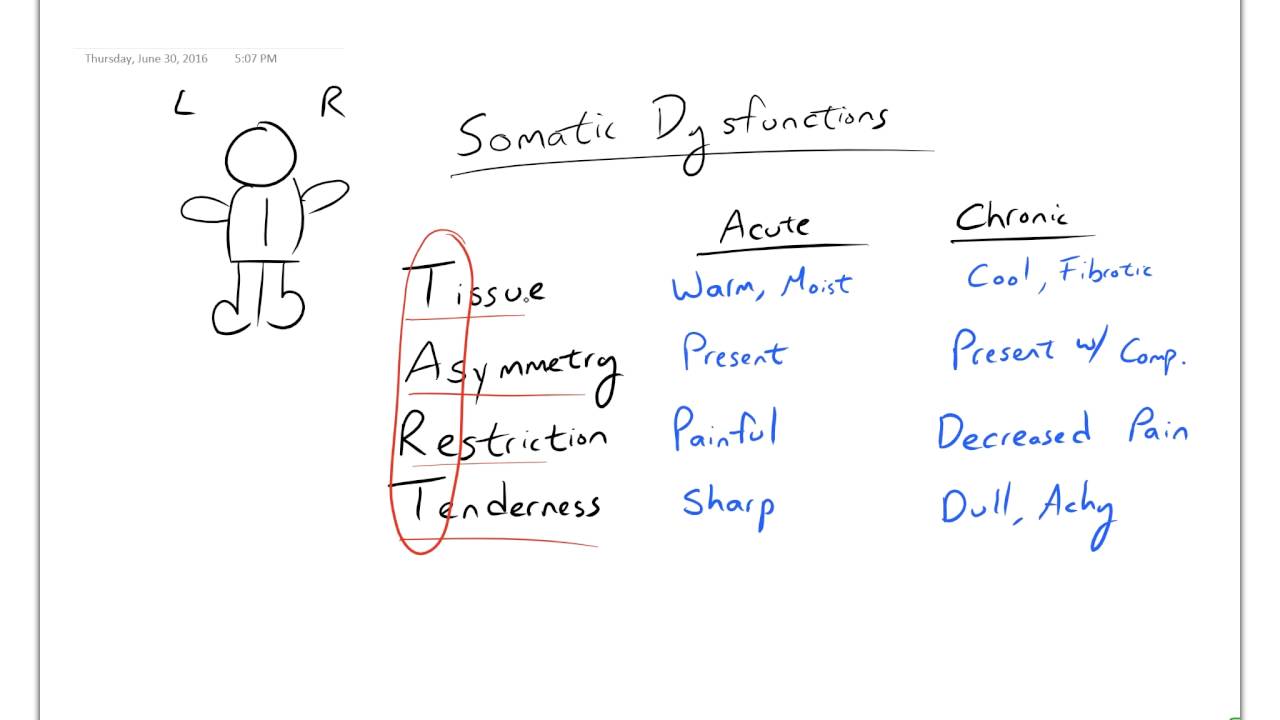 Thursday, June 30, 2016 5:07 PM
L R
Somatic Dysfunctions
Acute Chronic
Tissue Warm, Moist Cool, Fibrotic
Asymmetry Present Present w/ Comp.
Restriction Painful Decreased Pain
Tenderness Sharp Dull, Achy